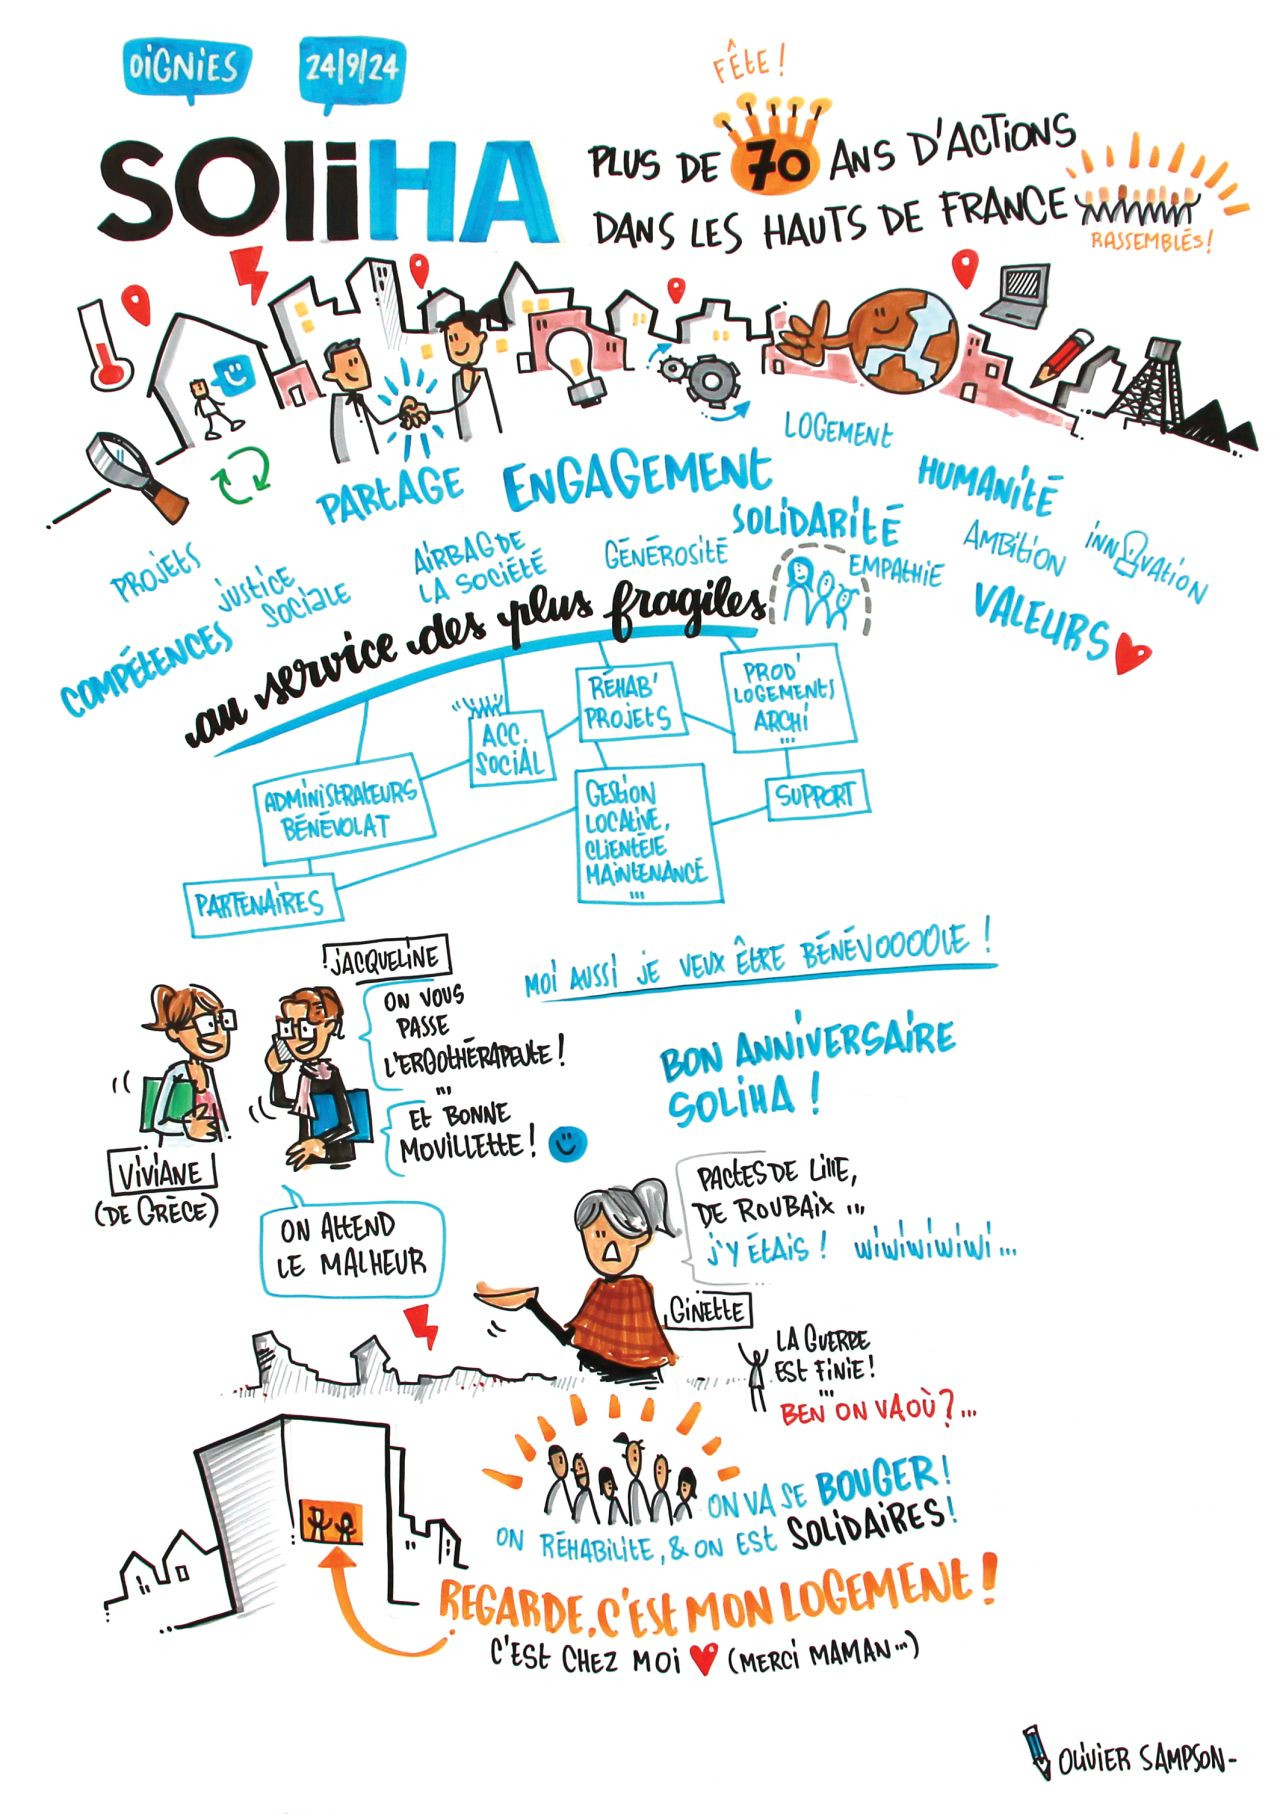 OIGNIES
24|9|24
SOLIHA
FÊTE !
PLUS DE 70 ANS D'ACTIONS
DANS LES HAUTS DE FRANCE
RASSEMBLÉS !
PARTAGE
ENGAGEMENT
LOGEMENT
HUMANITÉ
SOLIDARITÉ
PROJETS
JUSTICE
SOCIALE
AIRBAG DE
LA SOCIÉTÉ
GÉNÉROSITÉ
EMPATHIE
AMBITION
INNOVATION
COMPÉTENCES
VALEURS
au service des plus fragiles
ACC.
SOCIAL
RÉHAB'
PROJETS
PROD'
LOGEMENTS
ARCHI
...
ADMINISTRATEURS
BÉNÉVOLAT
GESTION
LOCATIVE,
CLIENTÈLE
MAINTENANCE
...
SUPPORT
PARTENAIRES
MOI AUSSI JE VEUX ÊTRE BÉNÉVOOOOLE !
! JACQUELINE
ON VOUS
PASSE
L'ERGOTHÉRAPEUTE !
...
ET BONNE
MOVILLETTE !
VIVIANE
(DE GRÈCE)
BON ANNIVERSAIRE
SOLIHA !
ON ATTEND
LE MALHEUR
PACTES DE LILLE,
DE ROUBAIX ...
J'Y ÉTAIS ! WIWIWIWIWI ...
GINETTE
LA GUERRE
EST FINIE !
...
BEN ON VA OÙ ? ...
ON VA SE BOUGER !
ON RÉHABILITE, & ON EST SOLIDAIRES !
REGARDE, C'EST MON LOGEMENT !
C'EST CHEZ MOI ♥ (MERCI MAMAN ...)
OLIVIER SAMPSON-